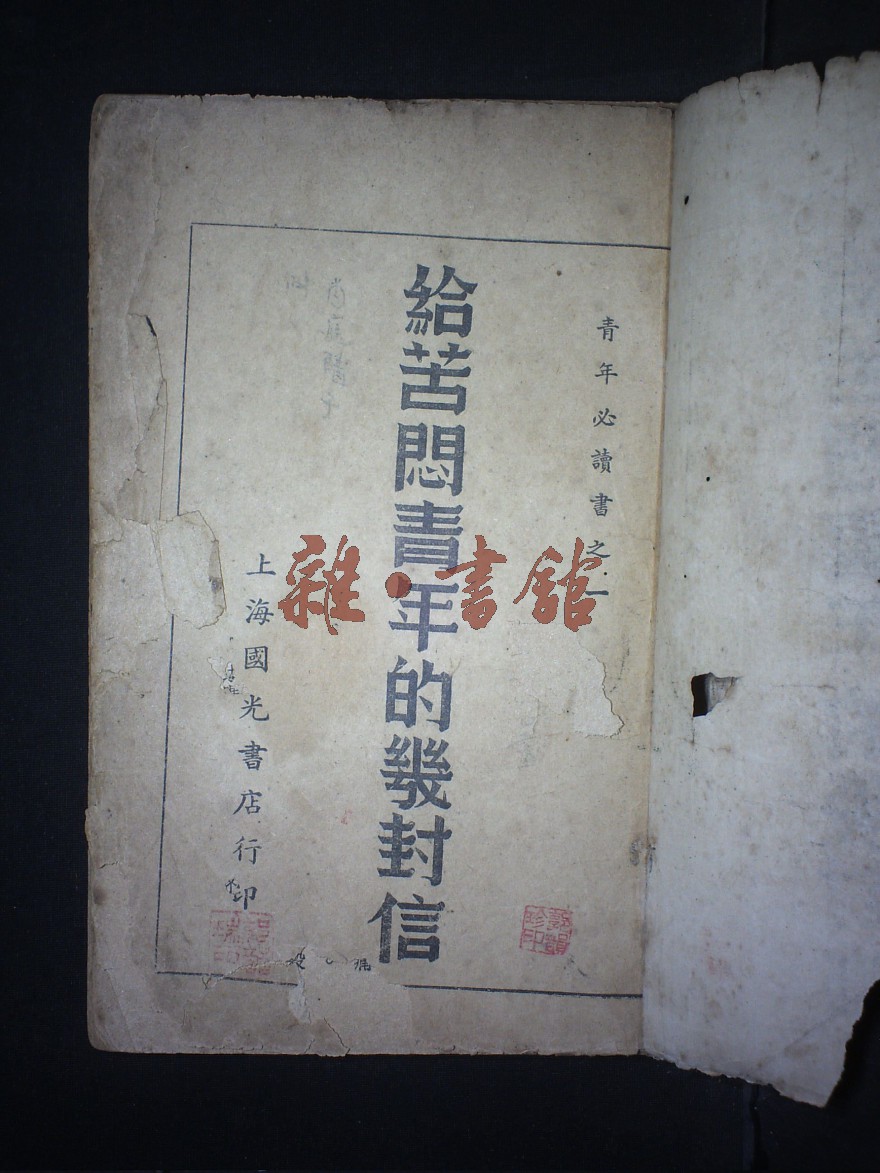 青年必讀書之一
給苦悶青年的幾封信
上海國光書店行印
雜·書館